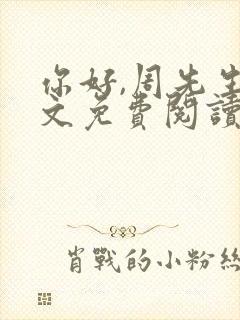 你好,周先生
文免費閱讀
肖戰的小粉絲